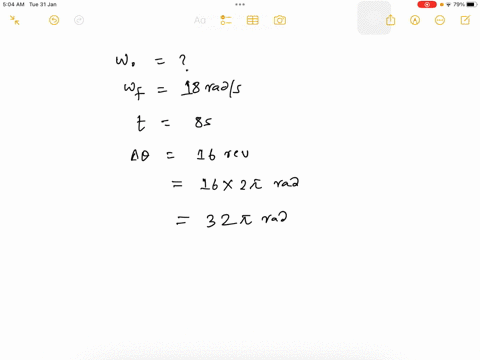 5:04 AM Tue 31 Jan
79%
Aa
ω₀ = ?
ω_f = 18 rad/s
t = 8s
Δθ = 16 rev
= 16 × 2π rad
= 32π rad